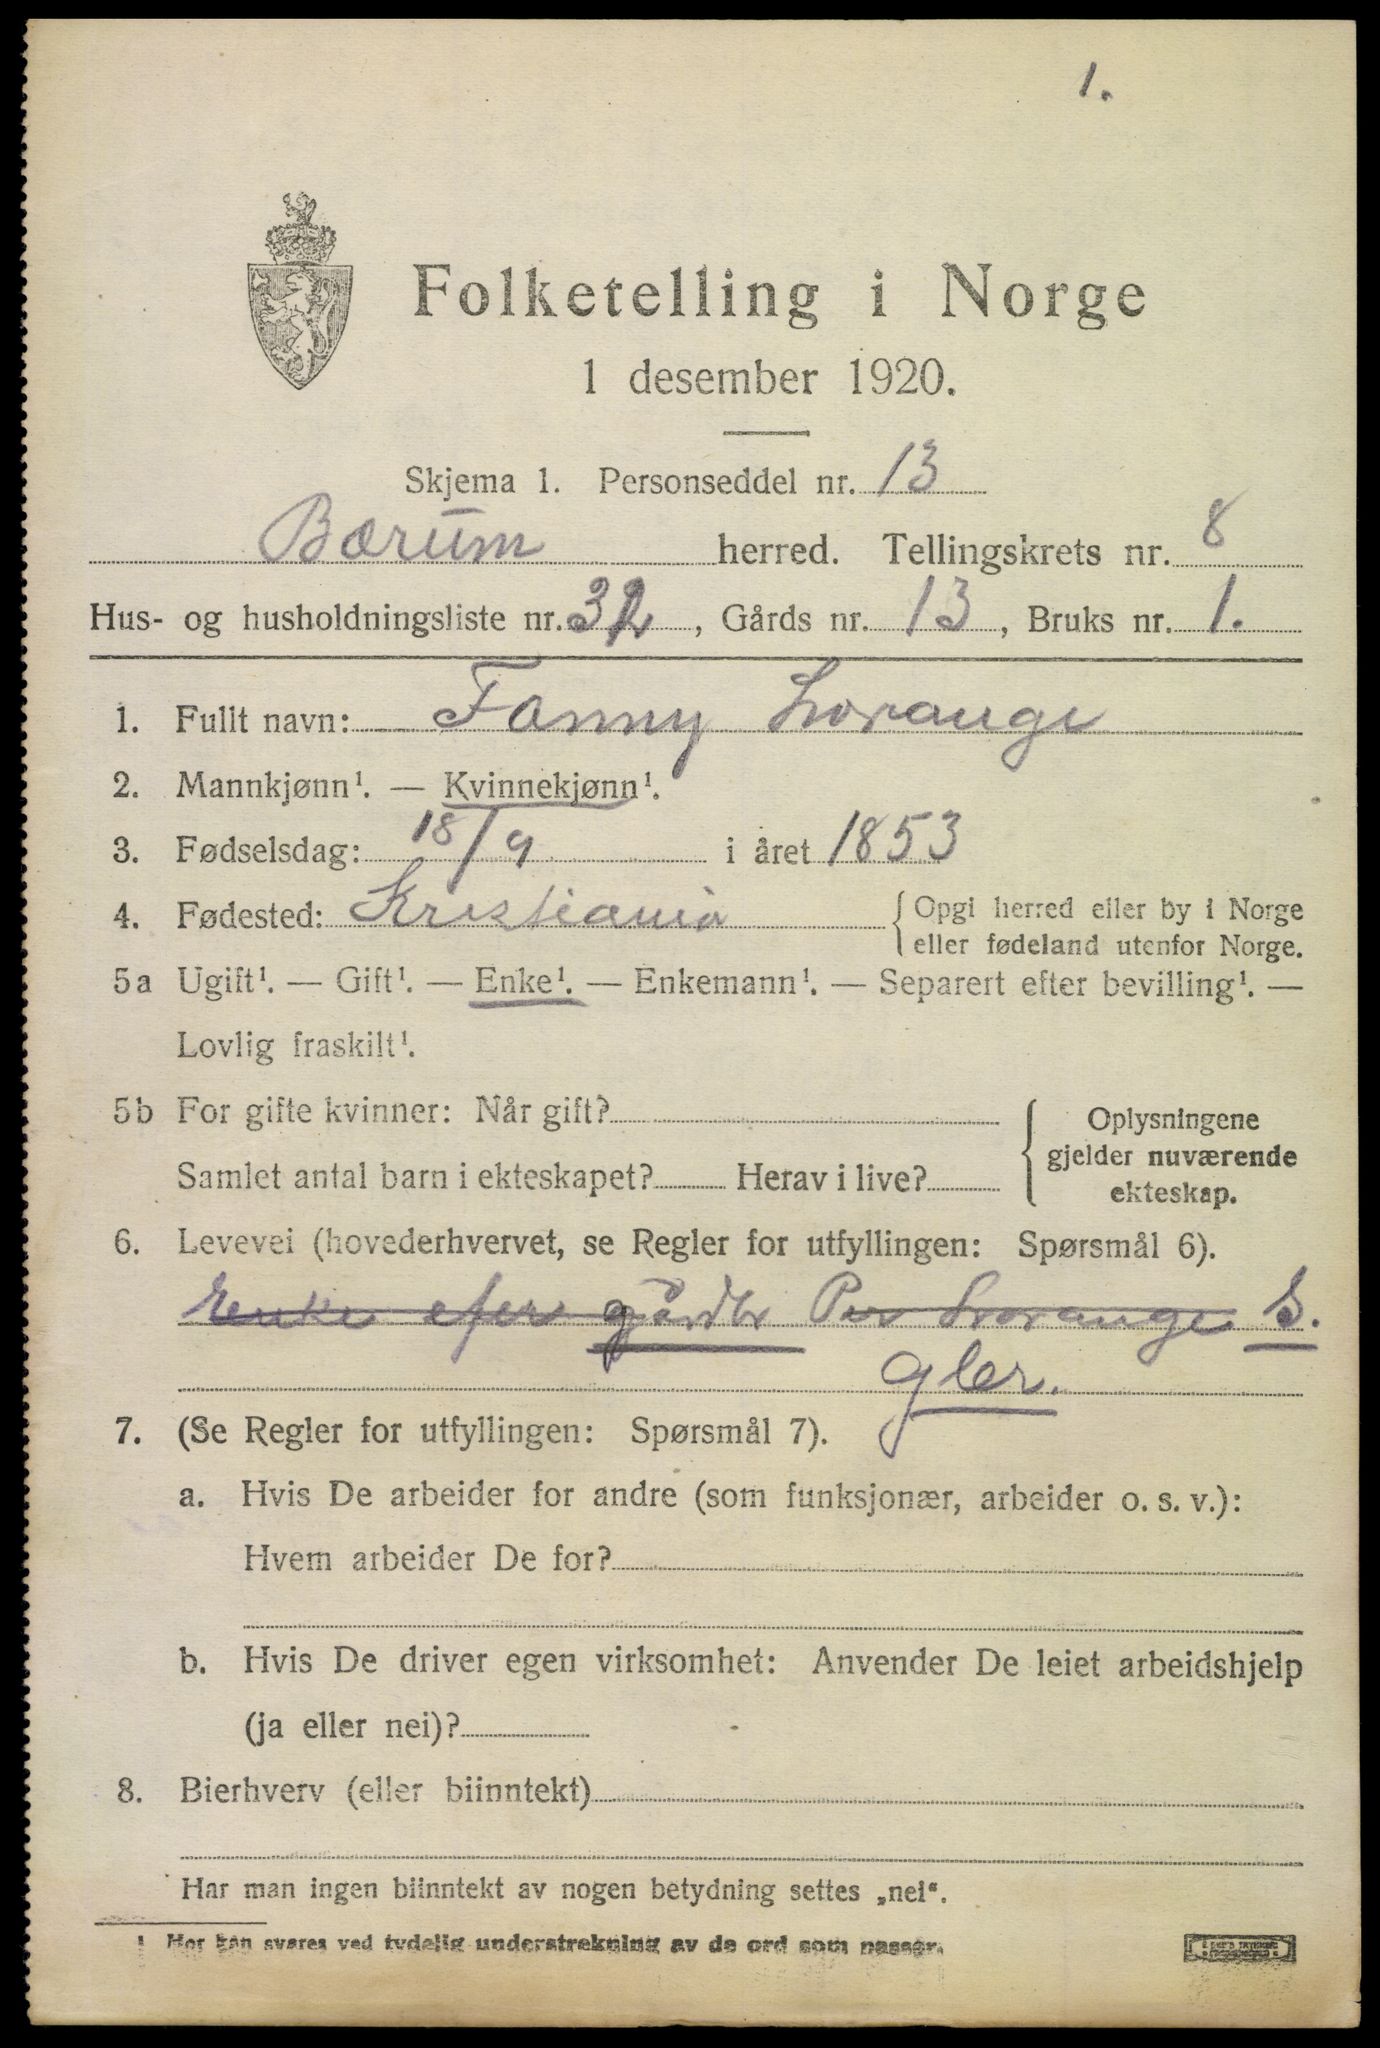 1.
Folketelling i Norge
1 desember 1920.
Skjema 1. Personseddel nr. 13
Bærum herred. Tellingskrets nr. 8
Hus- og husholdningsliste nr. 32, Gårds nr. 13, Bruks nr. 1.
1. Fullt navn: Fanny Lorange
2. Mannkjønn¹. — Kvinnekjønn¹.
3. Fødselsdag: 18/9 i året 1853
4. Fødested: Kristiania { Opgi herred eller by i Norge
eller fødeland utenfor Norge.
5a Ugift¹. — Gift¹. — Enke¹. — Enkemann¹. — Separert efter bevilling¹. —
Lovlig fraskilt¹.
5b For gifte kvinner: Når gift? { Oplysningene
gjelder nuværende
Samlet antal barn i ekteskapet? Herav i live? ekteskap.
6. Levevei (hovederhvervet, se Regler for utfyllingen: Spørsmål 6).
Enke efter gårdbr Per Lorange S.
gler.
7. (Se Regler for utfyllingen: Spørsmål 7).
a. Hvis De arbeider for andre (som funksjonær, arbeider o. s. v.):
Hvem arbeider De for?
b. Hvis De driver egen virksomhet: Anvender De leiet arbeidshjelp
(ja eller nei)?
8. Bierhverv (eller biinntekt)
Har man ingen biinntekt av nogen betydning settes „nei“.
1 Her kan svares ved tydelig understrekning av de ord som passer.